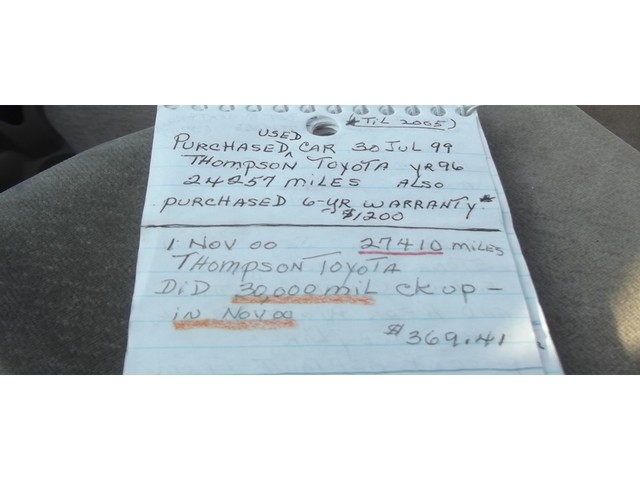 *TIL 2005)
USED
PURCHASED ^ CAR 30 JUL 99
THOMPSON TOYOTA YR96
24257 MILES ALSO
PURCHASED 6-YR WARRANTY*
$1200
1 NOV 00 27410 MILES
THOMPSON TOYOTA
DID 30,000 MIL CK UP –
IN NOV 00
$369.41